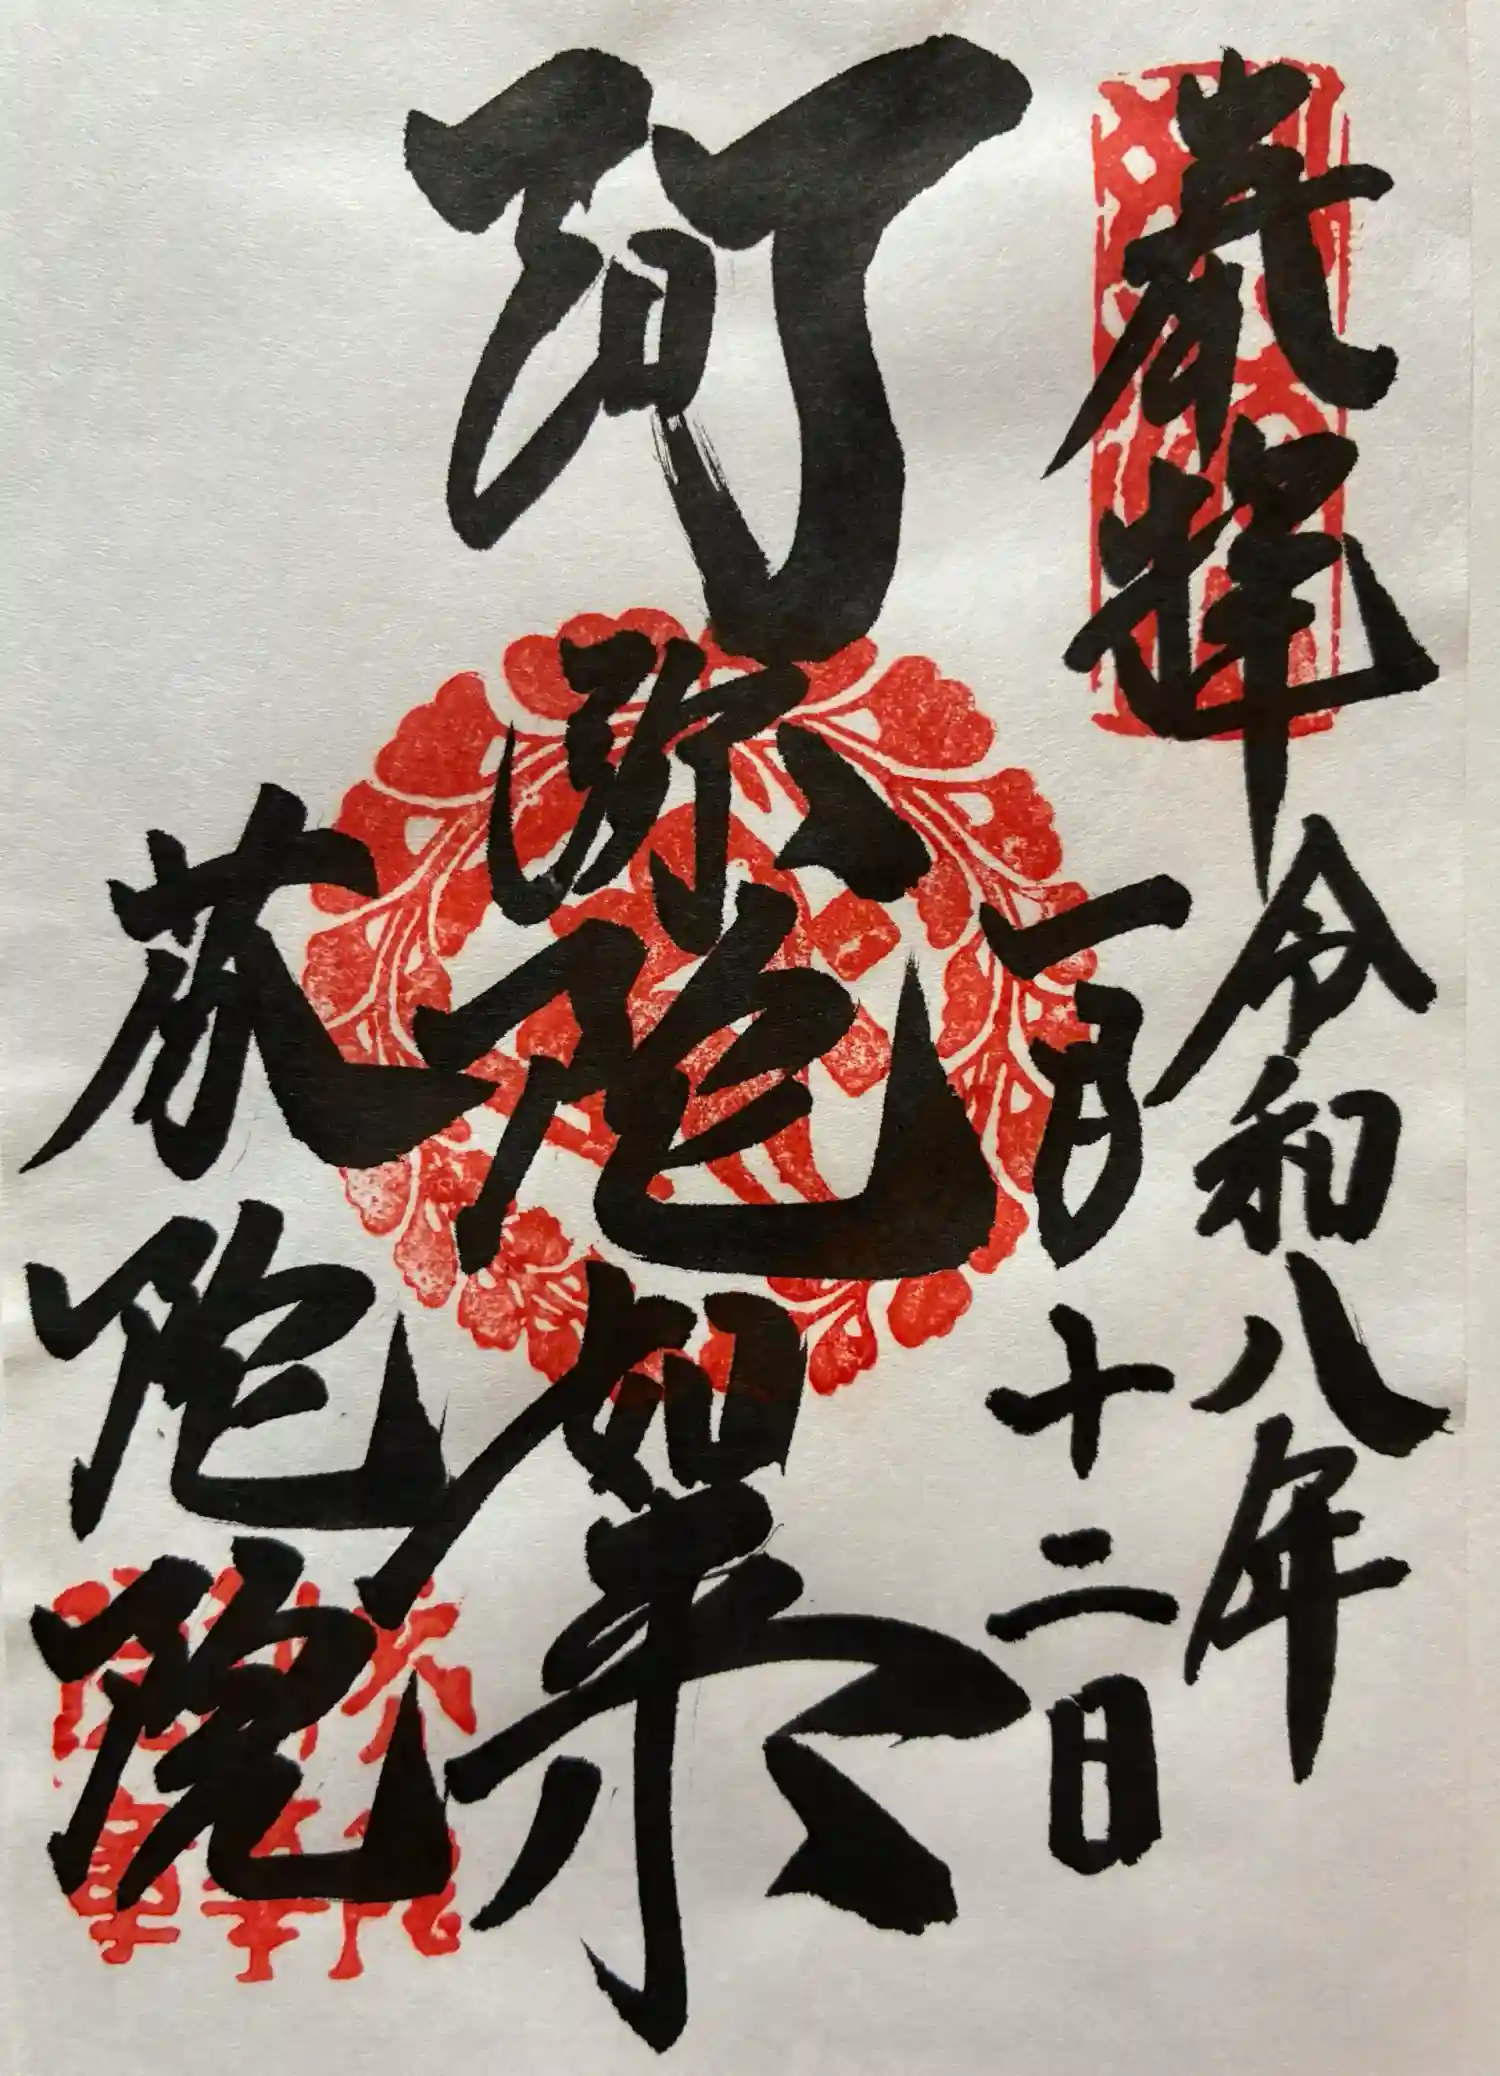 奉拝
令和八年
一月十二日
阿弥陀如来
芬陀院